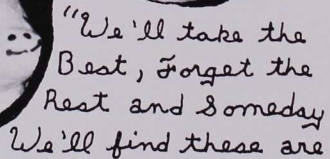 "We'll take the
Best, Forget the
Rest and Someday
We'll find these are